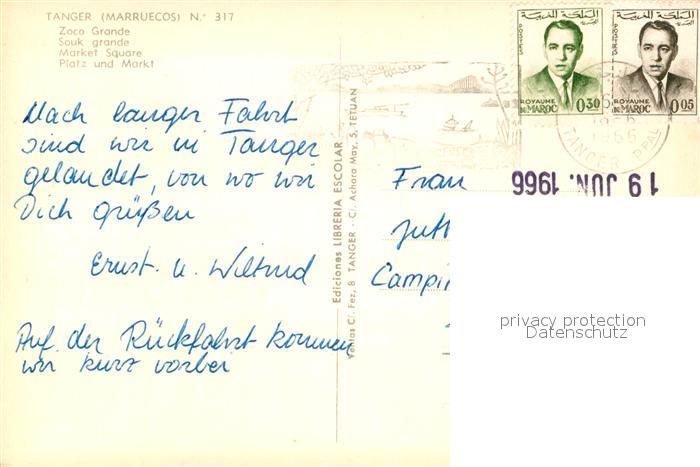 TANGER (MARRUECOS) N.° 317
Zoco Grande
Souk grande
Market Square
Platz und Markt
المملكة المغربية
POSTES
ROYAUME
DU MAROC
0,30
المملكة المغربية
POSTES
ROYAUME
DU MAROC
0,05
1966
TANGER PPAL
19 JUN. 1966
Nach langer Fahrt
sind wir in Tanger
gelandet, von wo wir
Dich grüßen
Ernst u. Wiltrud
Auf der Rückfahrt kommen
wir kurz vorbei
Ediciones LIBRERIA ESCOLAR
Ventas C/. Fez, 8 TANGER - C/. Achara May, 5, TETUAN
Frau
Jutt
Campi
privacy protection
Datenschutz